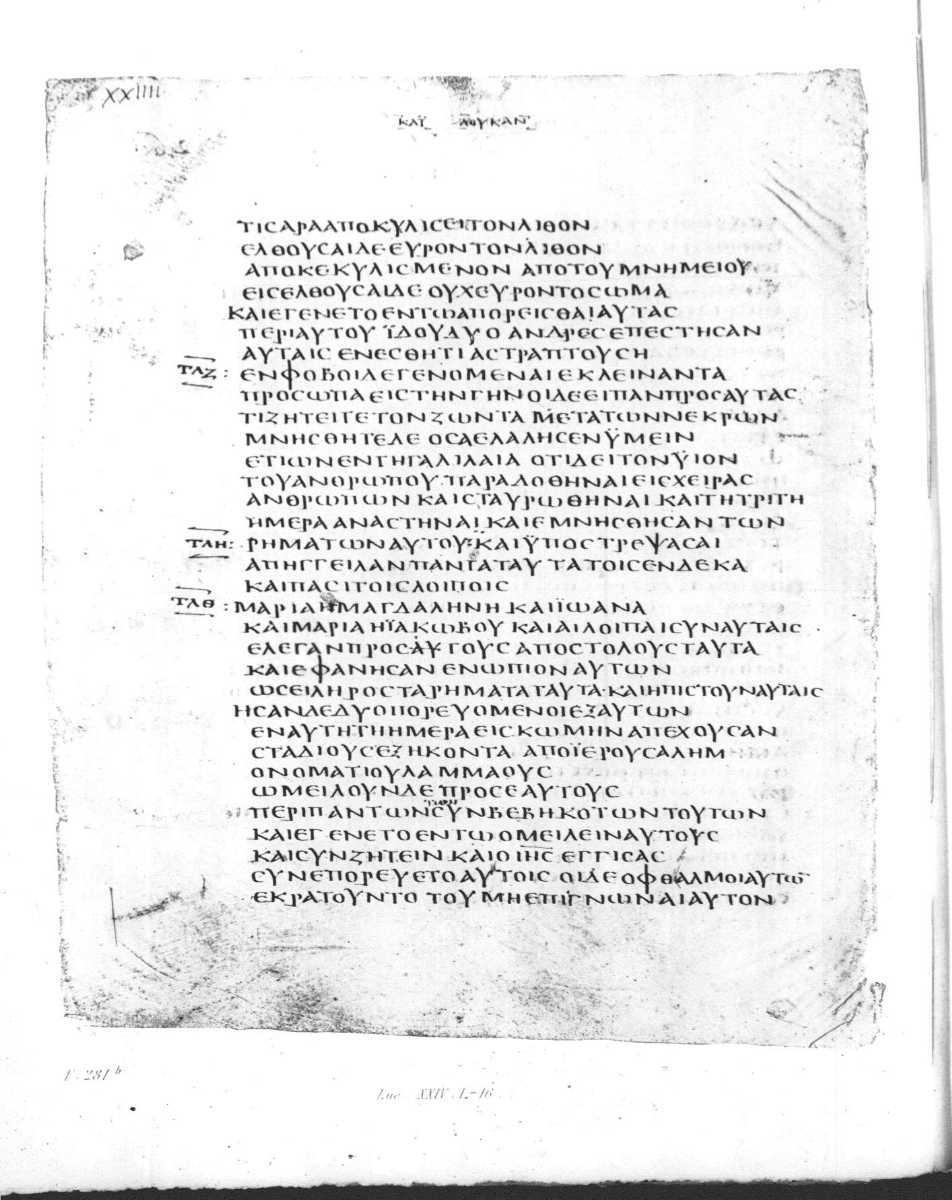 XXIIII
ΚΑΤ ΛΟΥΚΑΝ
ΤΙϹΑΡΑΑΠΟΚΥΛΙϹΕΙΤΟΝΛΙΘΟΝ
ΕΛΘΟΥϹΑΙΔΕΕΥΡΟΝΤΟΝΛΙΘΟΝ
ΑΠΟΚΕΚΥΛΙϹΜΕΝΟΝ ΑΠΟΤΟΥΜΝΗΜΕΙΟΥ
ΕΙϹΕΛΘΟΥϹΑΙΔΕ ΟΥΧΕΥΡΟΝΤΟϹΩΜΑ
ΚΑΙΕΓΕΝΕΤΟΕΝΤΩΑΠΟΡΕΙϹΘΑΙΑΥΤΑϹ
ΠΕΡΙΑΥΤΟΥ ΪΔΟΥΔΥΟ ΑΝΔΡΕϹΕΠΕϹΤΗϹΑΝ
ΑΥΤΑΙϹ ΕΝΕϹΘΗΤΙΑϹΤΡΑΠΤΟΥϹΗ
ΤΛΖ : ΕΝΦΟΒΟΙΔΕΓΕΝΟΜΕΝΑΙΕΚΛΕΙΝΑΝΤΑ
ΠΡΟϹΩΠΑΕΙϹΤΗΝΓΗΝΟΙΔΕΕΙΠΑΝΠΡΟϹΑΥΤΑϹ
ΤΙΖΗΤΕΙΤΕΤΟΝΖΩΝΤΑ ΜΕΤΑΤΩΝΝΕΚΡΩΝ
ΜΝΗϹΘΗΤΕΔΕ ΟϹΑΕΛΑΛΗϹΕΝΫΜΕΙΝ
ΕΤΙΩΝΕΝΤΗΓΑΛΙΛΑΙΑ ΟΤΙΔΕΙΤΟΝΫΙΟΝ
ΤΟΥΑΝΘΡΩΠΟΥ ΠΑΡΑΔΟΘΗΝΑΙΕΙϹΧΕΙΡΑϹ
ΑΝΘΡΩΠΩΝ ΚΑΙϹΤΑΥΡΩΘΗΝΑΙ ΚΑΙΤΗΤΡΙΤΗ
ΗΜΕΡΑΑΝΑϹΤΗΝΑΙ ΚΑΙΕΜΝΗϹΘΗϹΑΝΤΩΝ
ΤΛΗ: ΡΗΜΑΤΩΝΑΥΤΟΥ:ΚΑΙΫΠΟϹΤΡΕΨΑϹΑΙ
ΑΠΗΓΓΕΙΛΑΝΠΑΝΤΑΤΑΥΤΑΤΟΙϹΕΝΔΕΚΑ
ΚΑΙΠΑϹΙΤΟΙϹΛΟΙΠΟΙϹ
ΤΛΘ : ΜΑΡΙΑΗΜΑΓΔΑΛΗΝΗ ΚΑΙΪΩΑΝΑ
ΚΑΙΜΑΡΙΑΗΪΑΚΩΒΟΥ ΚΑΙΑΙΛΟΙΠΑΙϹΥΝΑΥΤΑΙϹ
ΕΛΕΓΑΝΠΡΟϹΑΥΓΟΥϹΑΠΟϹΤΟΛΟΥϹΤΑΥΤΑ
ΚΑΙΕΦΑΝΗϹΑΝ ΕΝΩΠΙΟΝΑΥΤΩΝ
ΩϹΕΙΛΗΡΟϹΤΑΡΗΜΑΤΑΤΑΥΤΑ·ΚΑΙΗΠΙϹΤΟΥΝΑΥΤΑΙϹ
ΗϹΑΝΔΕΔΥΟΠΟΡΕΥΟΜΕΝΟΙΕΞΑΥΤΩΝ
ΕΝΑΥΤΗΤΗΗΜΕΡΑΕΙϹΚΩΜΗΝΑΠΕΧΟΥϹΑΝ
ϹΤΑΔΙΟΥϹΕΞΗΚΟΝΤΑ ΑΠΟΪΕΡΟΥϹΑΛΗΜ
ΟΝΟΜΑΤΙΟΥΛΑΜΜΑΟΥϹ
ΩΜΕΙΛΟΥΝΔΕ ΠΡΟϹΕΑΥΤΟΥϹ
ΠΕΡΙΠΑΝΤΩΝϹΥΝΒΕΒΗΚΟΤΩΝΤΟΥΤΩΝ
ΚΑΙΕΓΕΝΕΤΟΕΝΤΩΟΜΕΙΛΕΙΝΑΥΤΟΥϹ
ΚΑΙϹΥΝΖΗΤΕΙΝ ΚΑΙΟΙΗϹ ΕΓΓΙϹΑϹ
ϹΥΝΕΠΟΡΕΥΕΤΟΑΥΤΟΙϹ ΟΙΔΕΟΦΘΑΛΜΟΙΑΥΤΩ
ΕΚΡΑΤΟΥΝΤΟ ΤΟΥΜΗΕΠΙΓΝΩΝΑΙΑΥΤΟΝ
F. 281b
Luc. XXIV. 1.–16